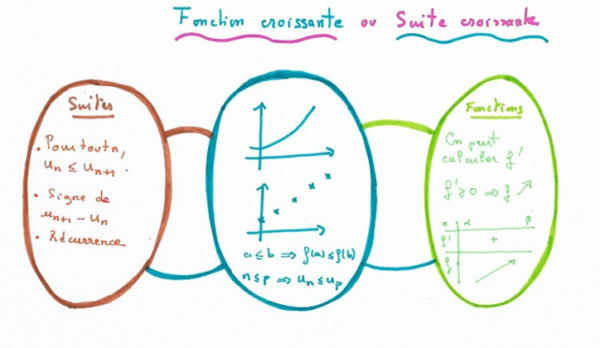 Fonction croissante ou Suite croissante
Suites
• Pour tout n,
uₙ ≤ uₙ₊₁.
• Signe de
uₙ₊₁ - uₙ
• Récurrence
a ≤ b ⇒ f(a) ≤ f(b)
n ≤ p ⇒ uₙ ≤ uₚ
Fonctions
On peut
calculer f'
f' ≥ 0 ⇒ f ↗
x α β
f' +
f